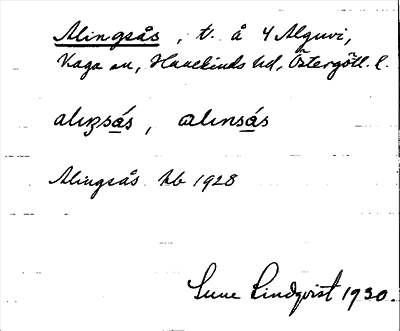 Alingsås, t. å 4 Alguvi,
Kaga sn, Hanekinds hd, Östergötl. l.
alıŋsås, alınsås
Alingsås Jb 1928
Sune Lindqvist 1930.